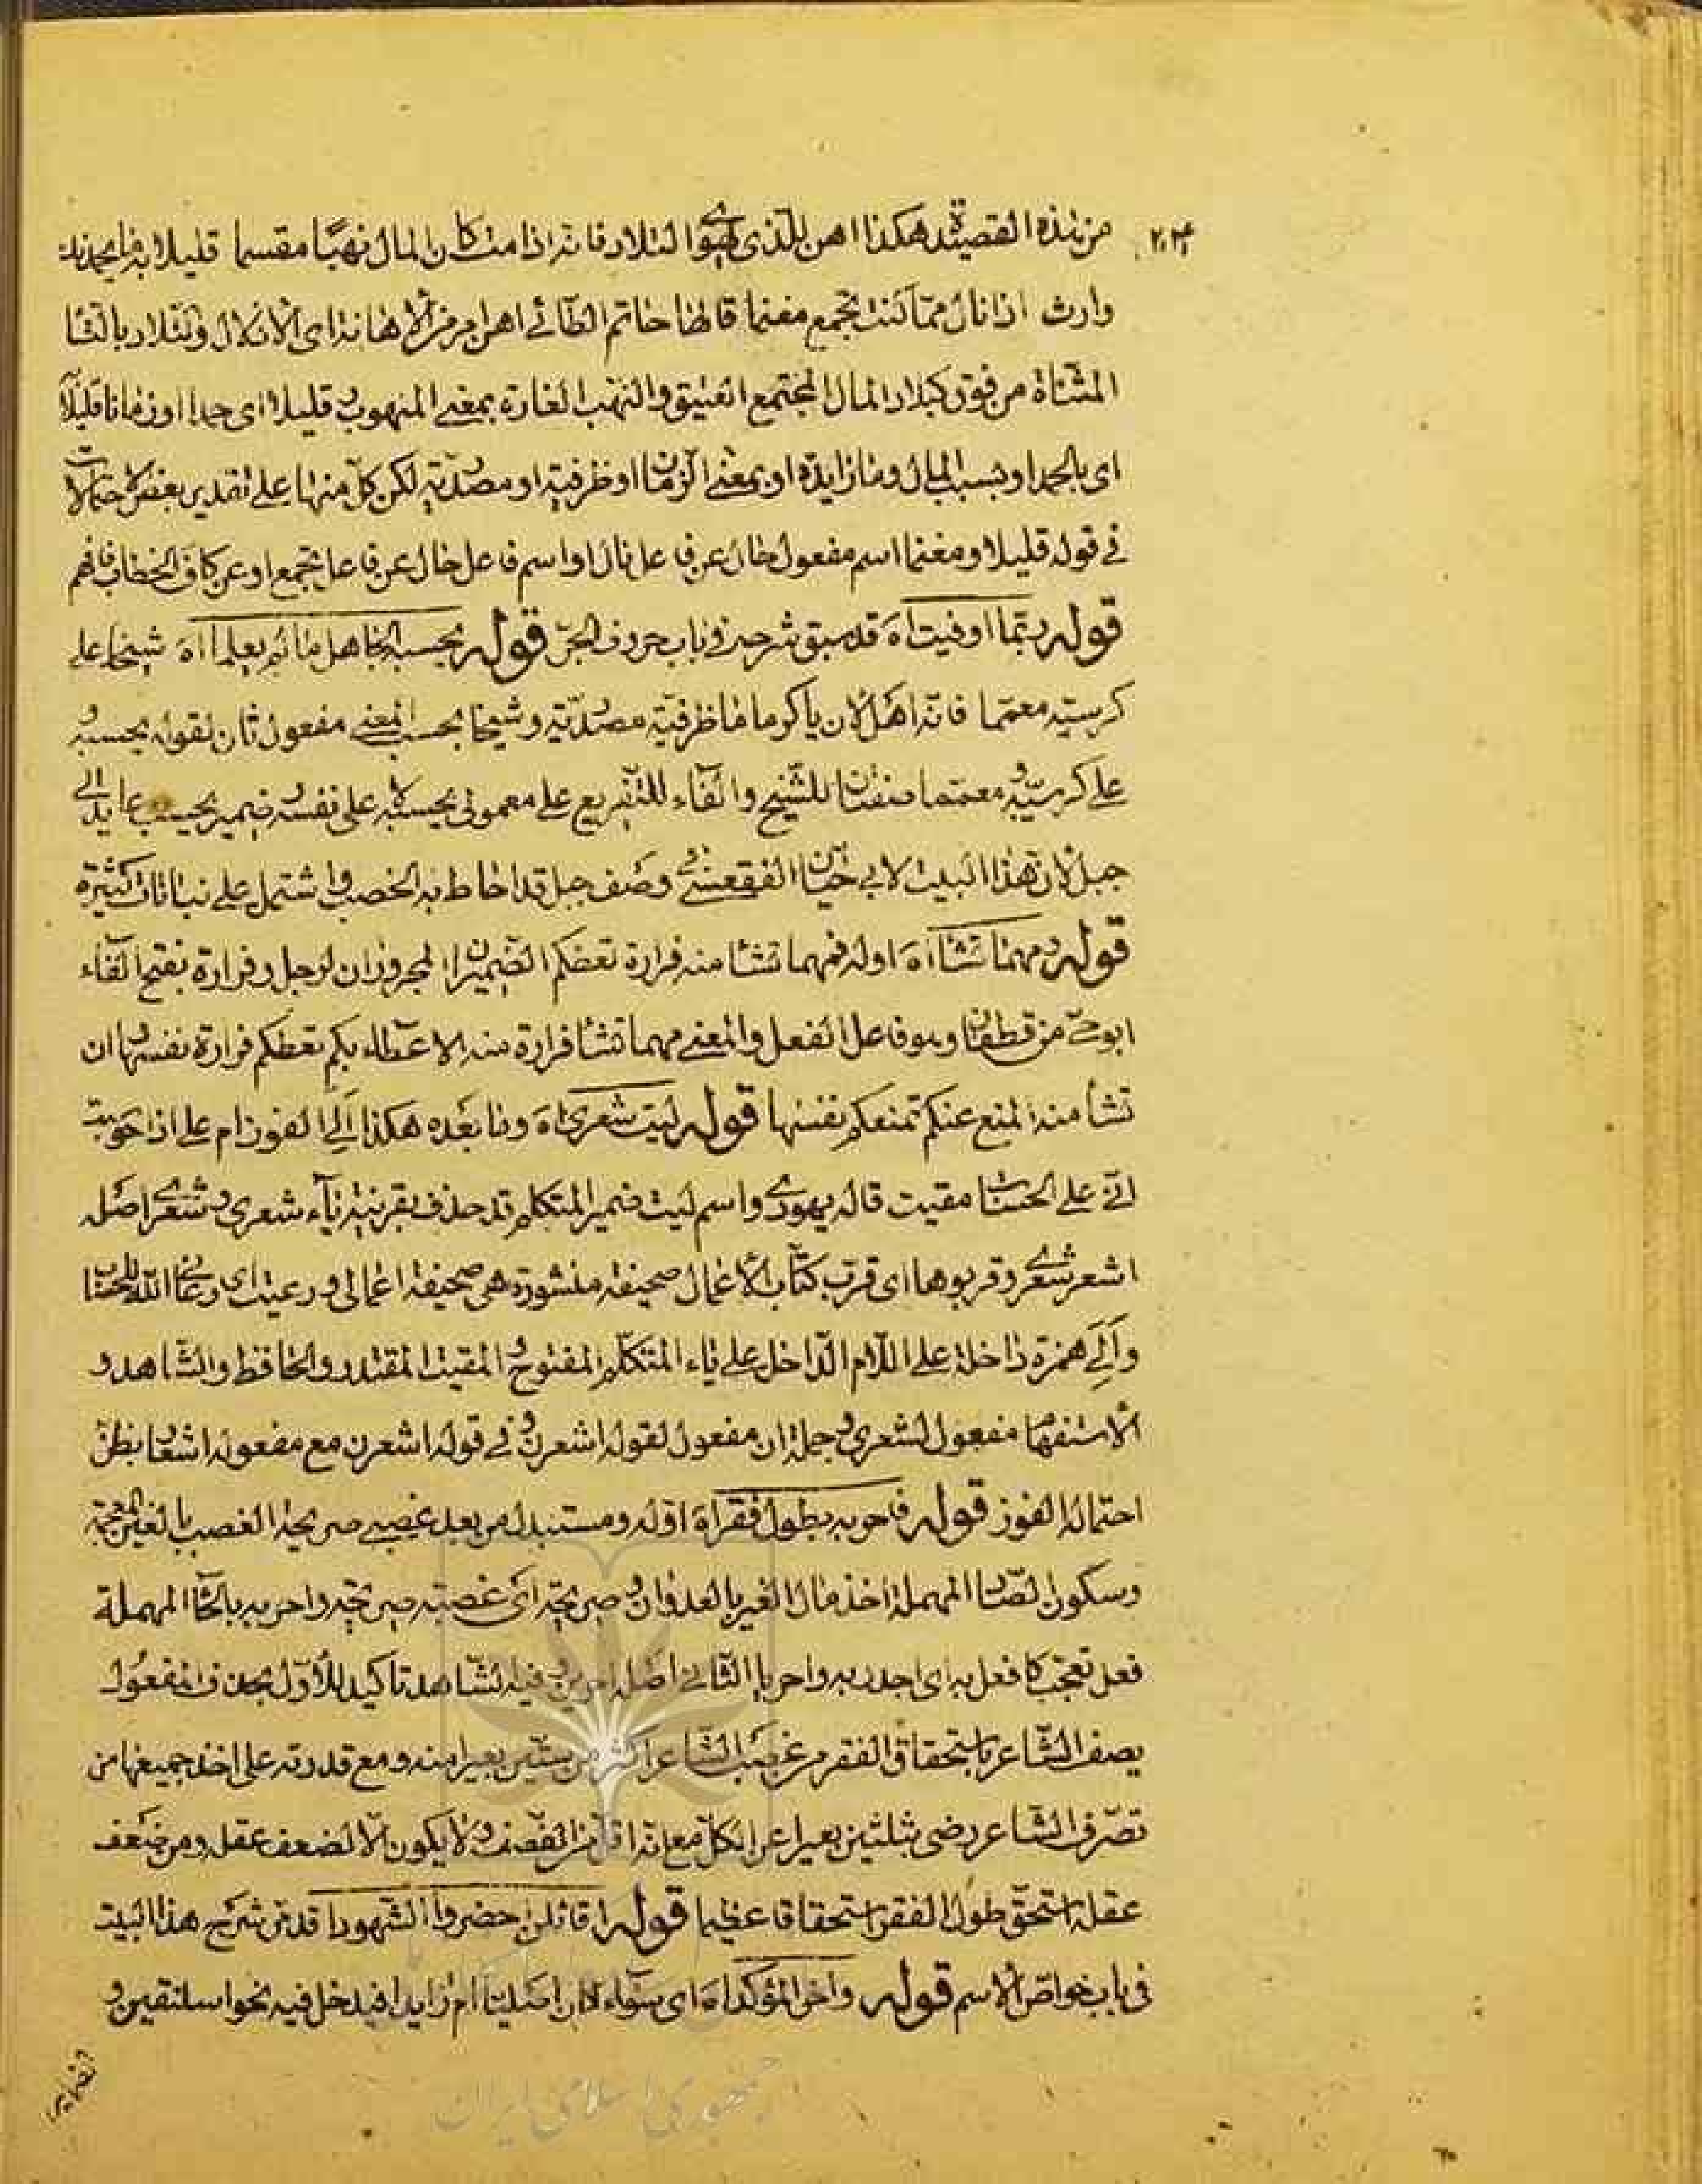 من هذه القصيدة هكذا اهن للذي تهوى التلاد فانه اذا مت كان المال نهبا مقسما قليلا به ما يحمدنك
وارث اذا نال مما كنت تجمع مغنما قالها حاتم الطائي اهن امر من الاهانة اى الاذلال والتلاد بالتاء
المثناة من فوق كبلاد المال المجتمع العتيق والنهب الغارة بمعنى المنهوب وقليلا اى حمدا او زمانا قليلا
اى بالحمد او بسبب المال وما زايدة او بمعنى الزمان او ظرفية او مصدرية لكن كل منها على تقدير بعض الاحتمالات
فى قوله قليلا ومغنما اسم مفعول حال عن فاعل نال او اسم فاعل حال عن فاعل تجمع او عن كاف الخطاب فافهم
قوله ربما اوفيت اه قد سبق شرحه فى باب حروف الجر قوله يحسبه الجاهل ما لم يعلما اه شيخا على
كرسيه معمما فانه اهل لان يؤكرما ما ظرفية مصدرية وشيخا بحسب المعنى مفعول ثان لقوله يحسبه و
على كرسيه ومعمما صفتان للشيخ والفاء للتفريع على معمولى يحسبه لا على نفسه وضمير يحسبه عايد الى
جبل لان هذا البيت لابى حيان الفقعسى وصف جبل قد احاط به الخصب واشتمل على نباتات كثيرة
قوله ومهما تشا اه اوله فمهما تشا منه فزارة تعطكم الضميران المجروران لرجل وفزارة بفتح الفاء
ابو حى من قطفان وهو فاعل الفعل والمعنى مهما تشا فزارة منه الاعطاء بكم تعطكم فزارة نفسها وان
تشا منه المنع عنكم تمنعكم نفسها قوله ليت شعرى اه وما بعده هكذا الى الفوز ام على اذا حوسبت
انى على الحساب مقيت قاله يهودى واسم ليت ضمير المتكلم قد حذف بقرينة ياء شعرى وشعرى اصله
اشعر شعرى وقربوها اى قرب كتاب الاعمال صحيفة منشورة هى صحيفة اعمالى ورعيت اى رعانى الله للحساب
وألى همزة داخلة على اللام الداخل على ياء المتكلم المفتوح والمقيت المقتدر والحافظ والشاهد و
الاستفهام مفعول لشعرى وجملة ان مفعول لقوله اشعرن وفى قوله اشعرن مع مفعوله اشعار بظن
احتماله الفوز قوله فاحر به بطول فقر اه اوله ومستبدل من بعد غضبى صريحة الغصب بالغين المعجمة
وسكون الصاد المهملة اخذ مال الغير بالعدوان وصريحة اى غصبته صريحة واحر به بالحاء المهملة
فعل تعجب كافعل به اى اجدر به واحريا الثانى اصله احرين وفيه الشاهد تاكيد للاول بحذف المفعول
يصف الشاعر باستحقاق الفقر من غصب الشاعر اكثر من ستين بعيرا منه ومع قدرته على اخذ جميعها من
تصرف الشاعر رضى بثلثين بعيرا عن الكل مع انه اقل من النصف ولا يكون الا لضعف عقله ومن ضعف
عقله استحق طول الفقر استحقاقا عظيما قوله اقائلن احضروا الشهودا قد مر شرح هذا البيت
فى باب خواص الاسم قوله واخر المؤكد اه اى سواء كان اصليا ام زايدا فيدخل فيه نحو اسلنقين و
جمهوری اسلامی ایران